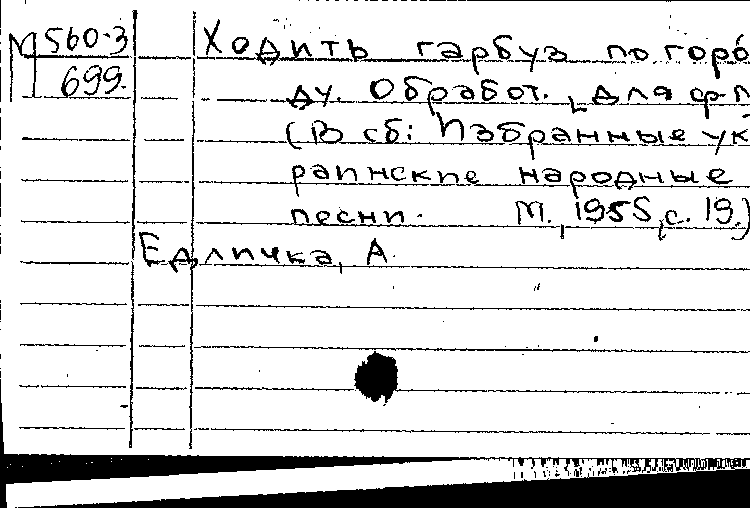 М 560-3
699.
Ходить гарбуз по горо
ду. Обработ. [для ф-п
(В сб: Избранные ук
раинские народные
песни. М., 1955, с. 19.)
Едличка, А.